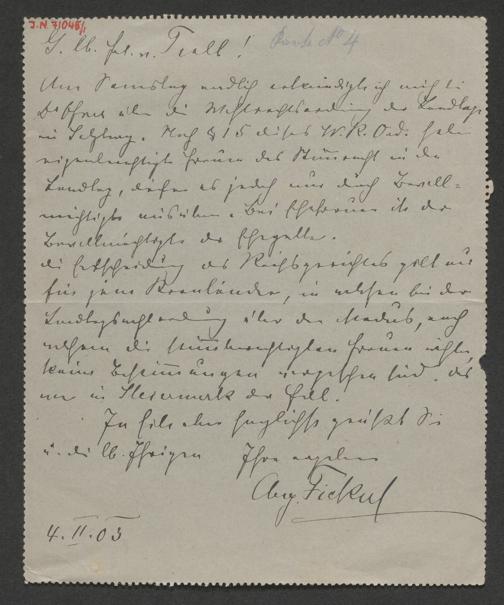 J.N. 71045/1
G. lb. frl. v. Troll! Karte No 4
Am Samstag endlich erkundigte ich mich bei
Dr Ofner über die Wahlrechtsordnung des Landtags
in Salzburg. Nach § 15 dieser W. R. Ord. haben
eigenberechtigte Frauen das Stimmrecht in den
Landtag, dürfen es jedoch nur durch Bevoll-
mächtigte ausüben. Bei Ehefrauen ist der
Bevollmächtigte der Ehegatte.
Die Entscheidung des Reichsgerichtes gilt nur
für jene Kronländer, in welchen bei der
Landtagswahlordnung über den Modus, nach
welchem die stimmberechtigten Frauen wählen
keine Bestimmungen vorgesehen sind, das
nur in Steiermark der Fall.
In Eile aber herzlichst grüßt Sie
u. die lb. Ihrigen Ihre ergebene
Aug. Fickert
4.II.03